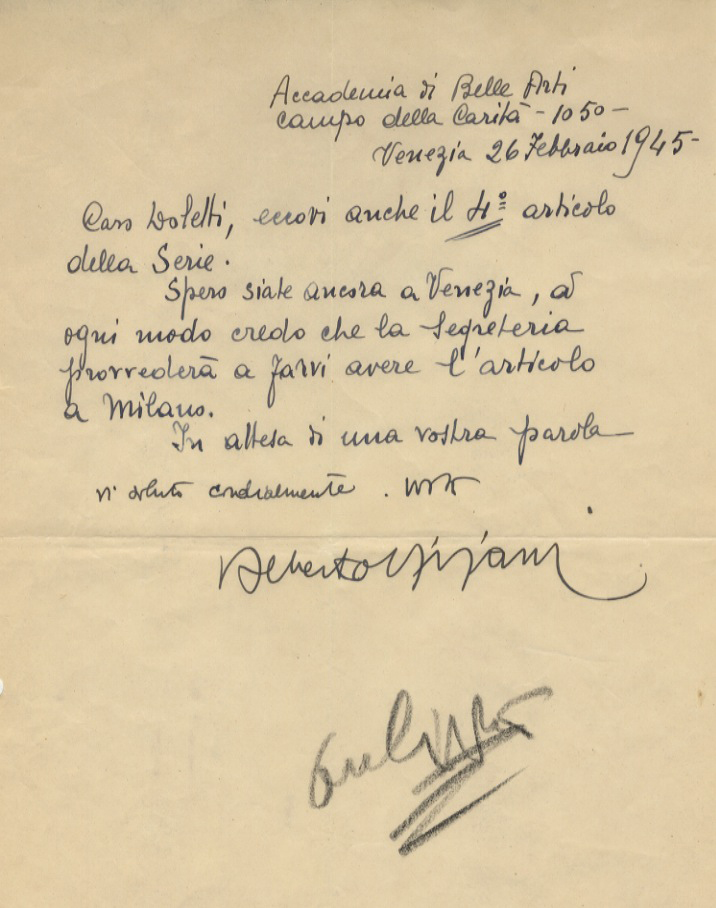 Accademia di Belle Arti
campo della Carità - 1050 -
Venezia 26 Febbraio 1945-
Caro Doletti, eccovi anche il 4º articolo
della Serie.
Spero siate ancora a Venezia, ad
ogni modo credo che la Segreteria
provvederà a farvi avere l'articolo
a Milano.
In attesa di una vostra parola
vi saluto cordialmente.
Alberto